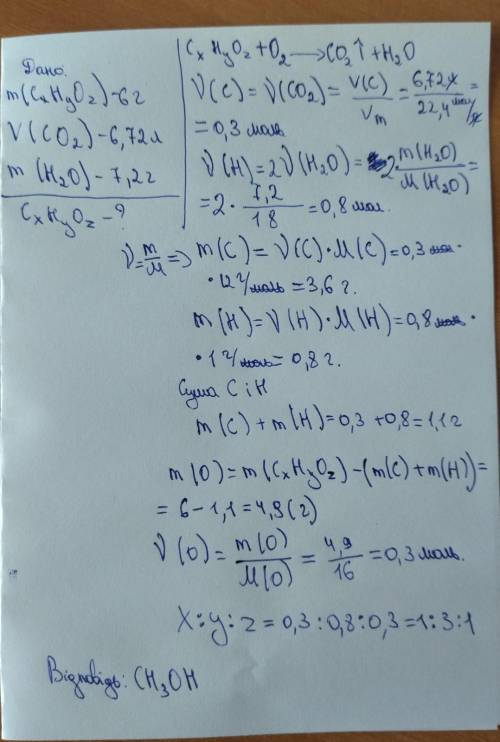 Дано:
m(CxHyOz)-6г
V(CO2)-6,72л
m(H2O)-7,2г
CxHyOz-?
CxHyOz+O2→CO2↑+H2O
ν(C)=ν(CO2)=V(C)/Vm=6,72л/22,4 моль/л=
=0,3 моль
ν(H)=2ν(H2O)=2m(H2O)/M(H2O)=
=2·7,2/18=0,8 мол.
ν=m/M=>m(C)=ν(C)·M(C)=0,3 моль·
·12г/моль=3,6г.
m(H)=ν(H)·M(H)=0,8 моль·
·1г/моль=0,8г.
Сума C і H
m(C)+m(H)=0,3+0,8=1,1г
m(O)=m(CxHyOz)-(m(C)+m(H))=
=6-1,1=4,9(г)
ν(O)=m(O)/M(O)=4,9/16=0,3моль.
X:y:z=0,3:0,8:0,3=1:3:1
Відповідь: CH3OH